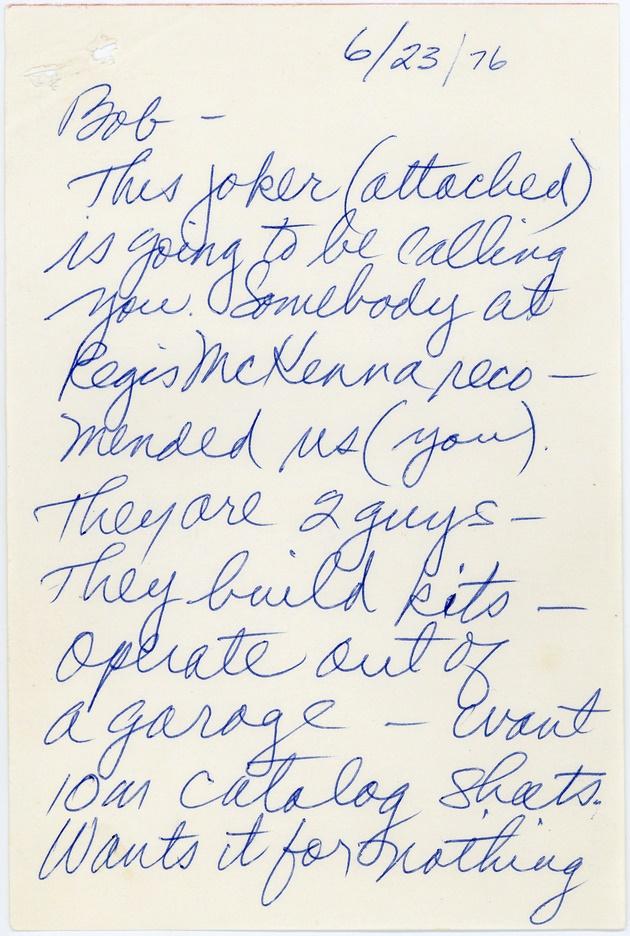 6/23/76
Bob -
This joker (attached)
is going to be calling
you. Somebody at
Regis McKenna reco-
mended us (you).
They are 2 guys -
They build kits -
Operate out of
a garage - want
10m catalog sheets.
Wants it for nothing